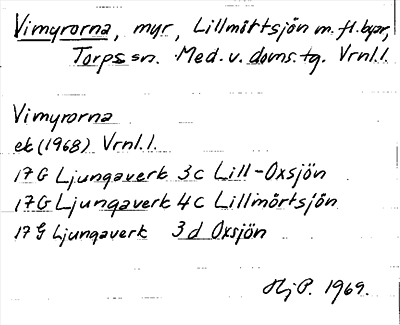 Vimyrorna, myr, Lillmörtsjön m. fl. byar,
Torps sn. Med. v. doms. tg. Vrnl. l.
Vimyrorna
ek (1968) Vrnl. l.
17 G Ljungaverk 3 c Lill-Oxsjön
17 G Ljungaverk 4 c Lillmörtsjön
17 G Ljungaverk 3 d Oxsjön
Hj P. 1969.